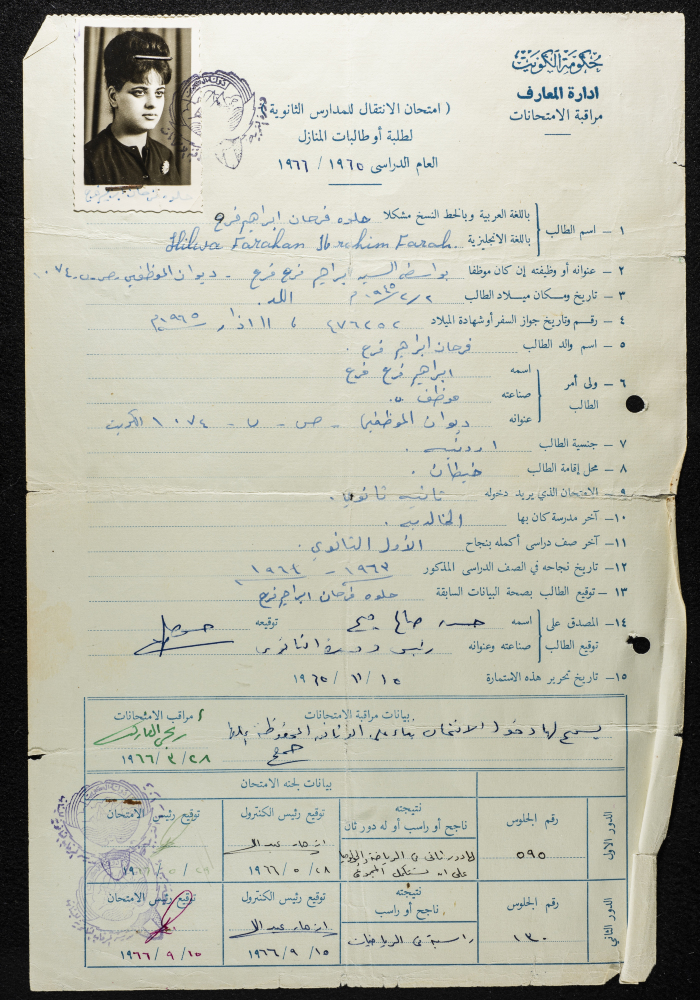 حكومة الكويت
ادارة المعارف
مراقبة الامتحانات
( امتحان الانتقال للمدارس الثانوية )
لطلبة أو طالبات المنازل
العام الدراسى ١٩٦٥ / ١٩٦٦
١ – اسم الطالب
باللغة العربية وبالخط النسخ مشكلا حلوه فرحان ابراهيم فرح
باللغة الانجليزية Hilwa Farahan Ibrehim Farah.
٢ – عنوانه أو وظيفته إن كان موظفا بواسطة السيد ابراهيم فرح فرح - ديوان الموظفين ص.ب. ١٠٧٤
٣ – تاريخ ومكان ميلاد الطالب ٢/٢/١٩٤٥ م اللد.
٤ – رقم وتاريخ جواز السفر أو شهادة الميلاد ٤٧٦٢٥٢ ١١ اذار ١٩٦٥م
٥ – اسم والد الطالب فرحان ابراهيم فرح .
٦ – ولى أمر الطالب
اسمه ابراهيم فرح فرح
صناعته موظف
عنوانه ديوان الموظفين - ص - ب - ١٠٧٤ الكويت
٧ – جنسية الطالب اردنيه .
٨ – محل إقامة الطالب خيطان .
٩ – الامتحان الذي يريد دخوله ثانيه ثانوي .
١٠– آخر مدرسة كان بها الخالديه .
١١– آخر صف دراسى أكمله بنجاح الأول الثانوي .
١٢– تاريخ نجاحه في الصف الدراسى المذكور ١٩٦٣ - ١٩٦٤
١٣ – توقيع الطالب بصحة البيانات السابقة حلوه فرحان ابراهيم فرح
١٤– المصدق على توقيع الطالب
اسمه حسن صالح توقيعه
صناعته وعنوانه رئيس دورة الثانوي
١٥– تاريخ تحرير هذه الاشتمارة ١٥ / ١١ / ١٩٦٥
بيانات مراقبة الامتحانات
مراقب الامتحانات
يسمح لها دخول الامتحان بناء على الوثائق المحفوظة
٢٨ / ٣ / ١٩٦٦
بيانات لجنه الامتحان
الدور الاول
رقم الجلوس
٥٩٥
نتيجته
ناجح أو راسب أو له دور ثان
لها دور ثاني في الرياضة
على ان تستكمل المجموع
توقيع رئيس الكنترول
٢٨ / ٥ / ١٩٦٦
توقيع رئيس الامتحان
الدور الثاني
رقم الجلوس
١٣٠
نتيجته
ناجح أو راسب
راسبة في الرياضيات
توقيع رئيس الكنترول
١٥ / ٩ / ١٩٦٦
توقيع رئيس الامتحان
١٥ / ٩ / ١٩٦٦